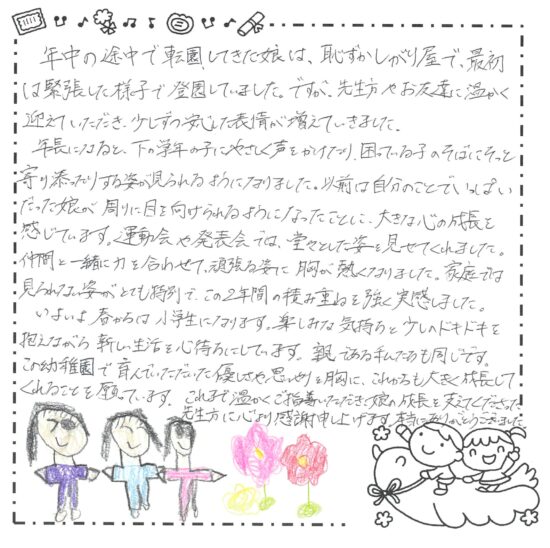 年中の途中で転園してきた娘は、恥ずかしがり屋で、最初
は緊張した様子で登園していました。ですが、先生方やお友達に温かく
迎えていただき、少しずつ安心した表情が増えていきました。
年長になると、下の学年の子にやさしく声をかけたり、困っている子のそばにそっと
寄り添ったりする姿が見られるようになりました。以前は自分のことでいっぱい
だった娘が周りに目を向けられるようになったことに、大きな心の成長を
感じています。運動会や発表会では、堂々とした姿を見せてくれました。
仲間と一緒に力を合わせて、頑張る姿に胸が熱くなりました。家庭では
見られない姿がとても特別で、この2年間の積み重ねを強く実感しました。
いよいよ春からは小学生になります。楽しみな気持ちと少しのドキドキを
抱えながら新しい生活を心待ちにしています。親である私たちも同じです。
この幼稚園で育んでいただいた優しさや思いやりを胸に、これからも大きく成長して
くれることを願っています。これまで温かくご指導いただき娘の成長を支えてくださった
先生方に心より感謝申し上げます。本当にありがとうございました